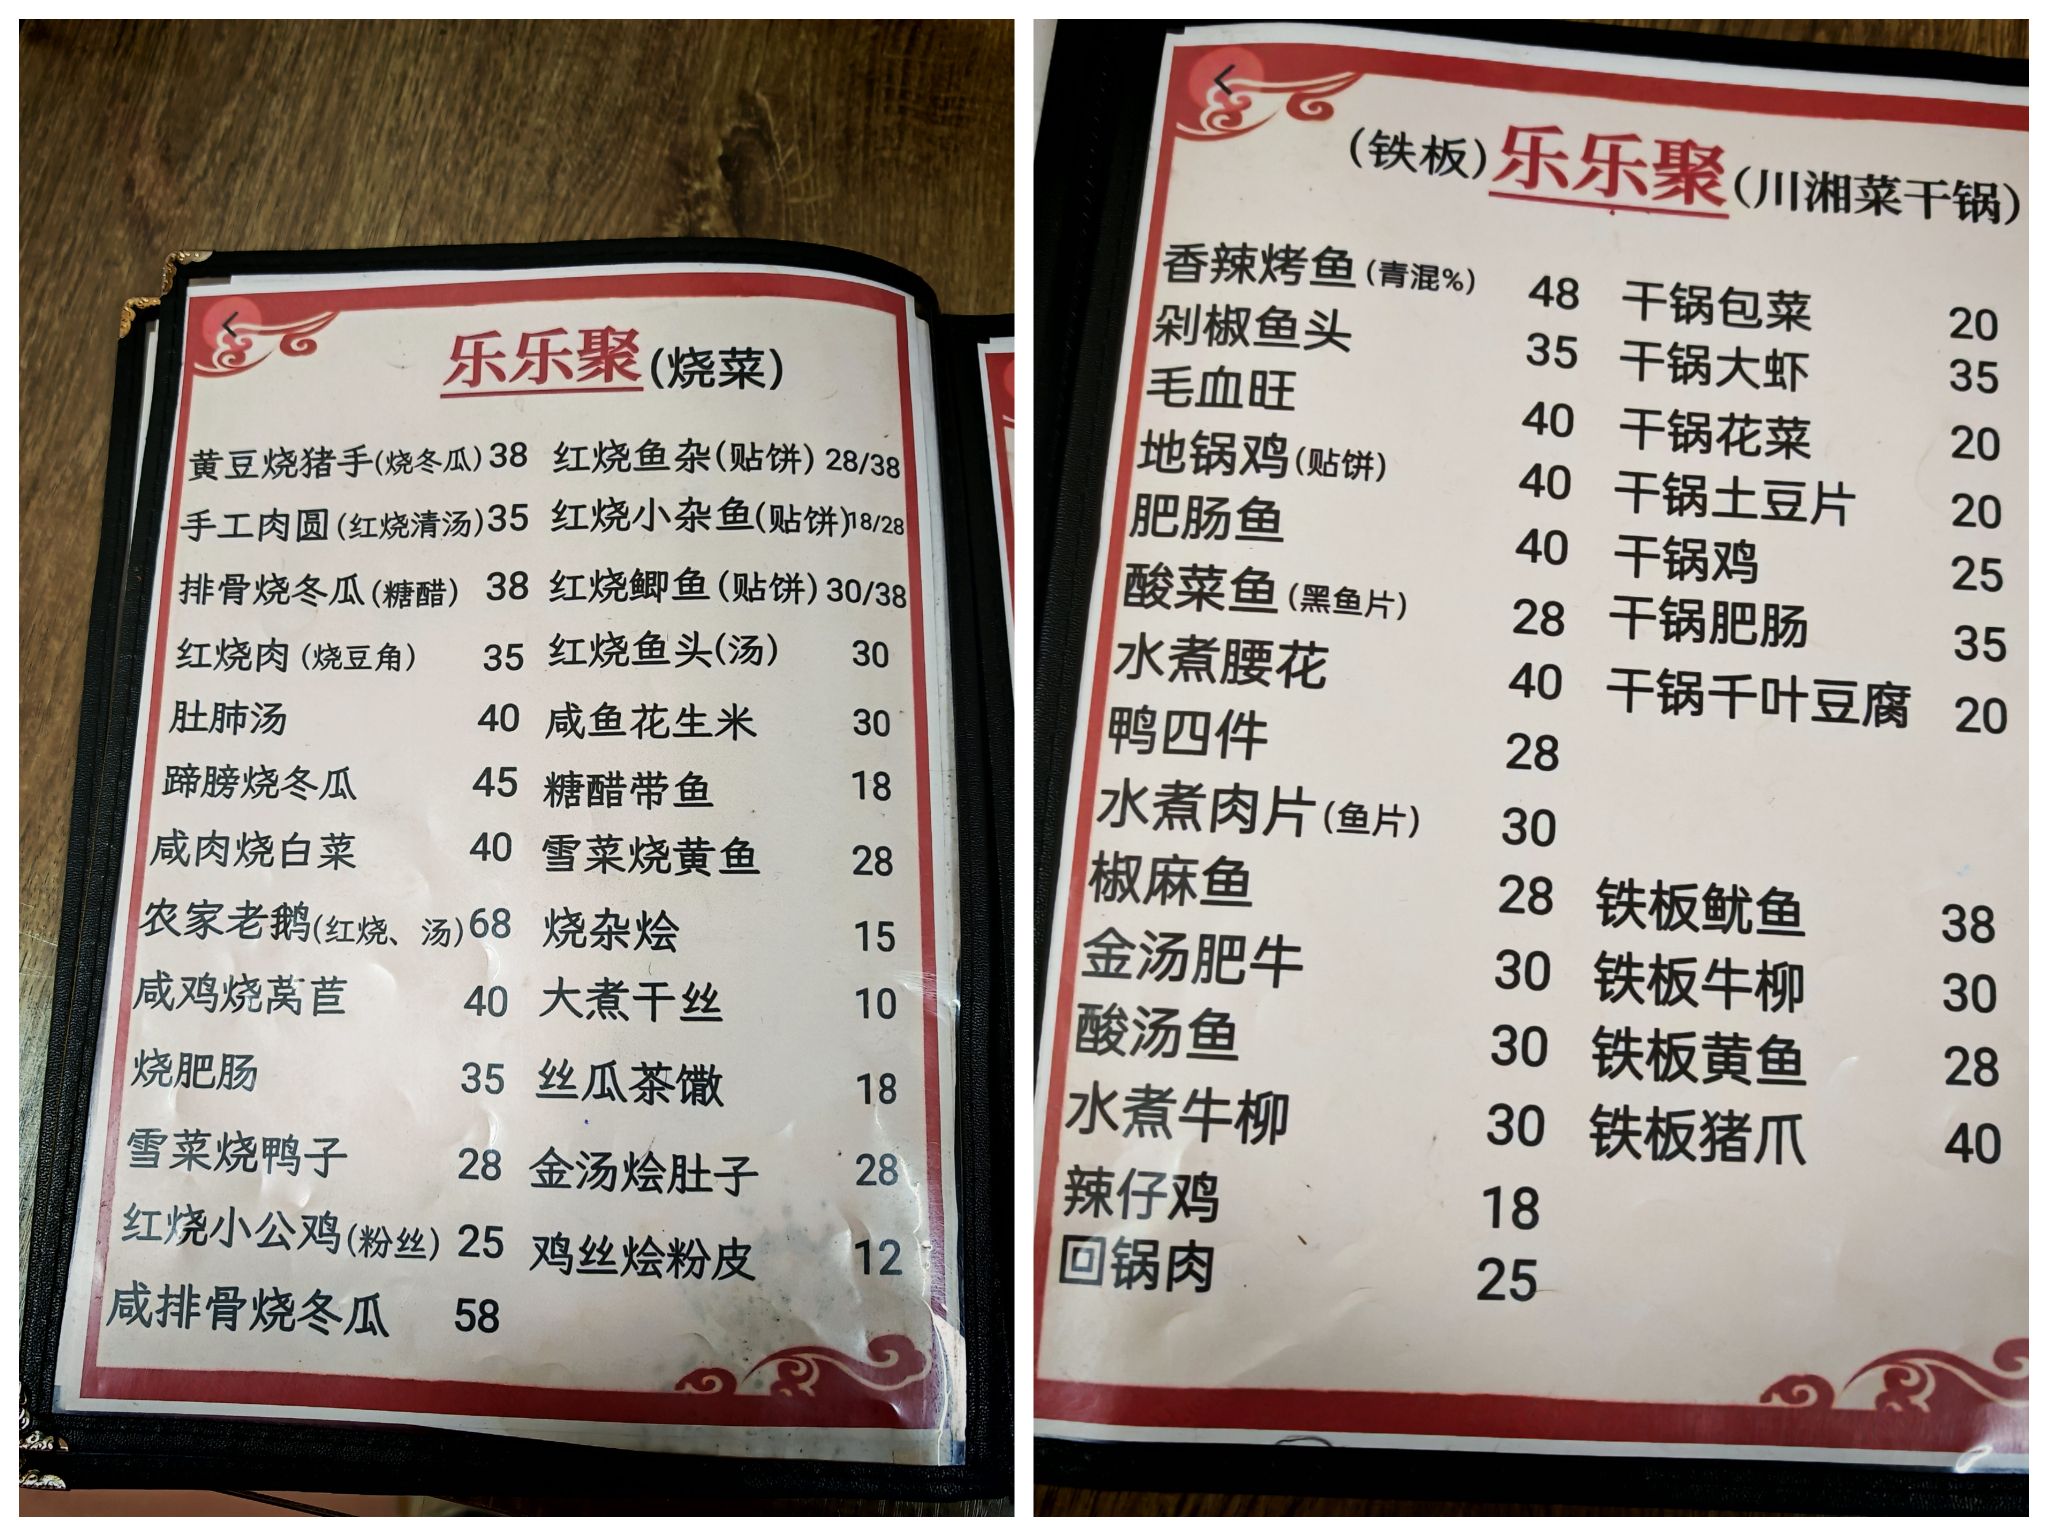 乐乐聚(烧菜)
黄豆烧猪手(烧冬瓜) 38 红烧鱼杂(贴饼) 28/38
手工肉圆(红烧清汤) 35 红烧小杂鱼(贴饼) 18/28
排骨烧冬瓜(糖醋) 38 红烧鲫鱼(贴饼) 30/38
红烧肉(烧豆角) 35 红烧鱼头(汤) 30
肚肺汤 40 咸鱼花生米 30
蹄膀烧冬瓜 45 糖醋带鱼 18
咸肉烧白菜 40 雪菜烧黄鱼 28
农家老鹅(红烧、汤) 68 烧杂烩 15
咸鸡烧莴苣 40 大煮干丝 10
烧肥肠 35 丝瓜茶馓 18
雪菜烧鸭子 28 金汤烩肚子 28
红烧小公鸡(粉丝) 25 鸡丝烩粉皮 12
咸排骨烧冬瓜 58
(铁板)乐乐聚(川湘菜干锅)
香辣烤鱼(青混%) 48 干锅包菜 20
剁椒鱼头 35 干锅大虾 35
毛血旺 40 干锅花菜 20
地锅鸡(贴饼) 40 干锅土豆片 20
肥肠鱼 40 干锅鸡 25
酸菜鱼(黑鱼片) 28 干锅肥肠 35
水煮腰花 40 干锅千叶豆腐 20
鸭四件 28
水煮肉片(鱼片) 30
椒麻鱼 28 铁板鱿鱼 38
金汤肥牛 30 铁板牛柳 30
酸汤鱼 30 铁板黄鱼 28
水煮牛柳 30 铁板猪爪 40
辣仔鸡 18
回锅肉 25